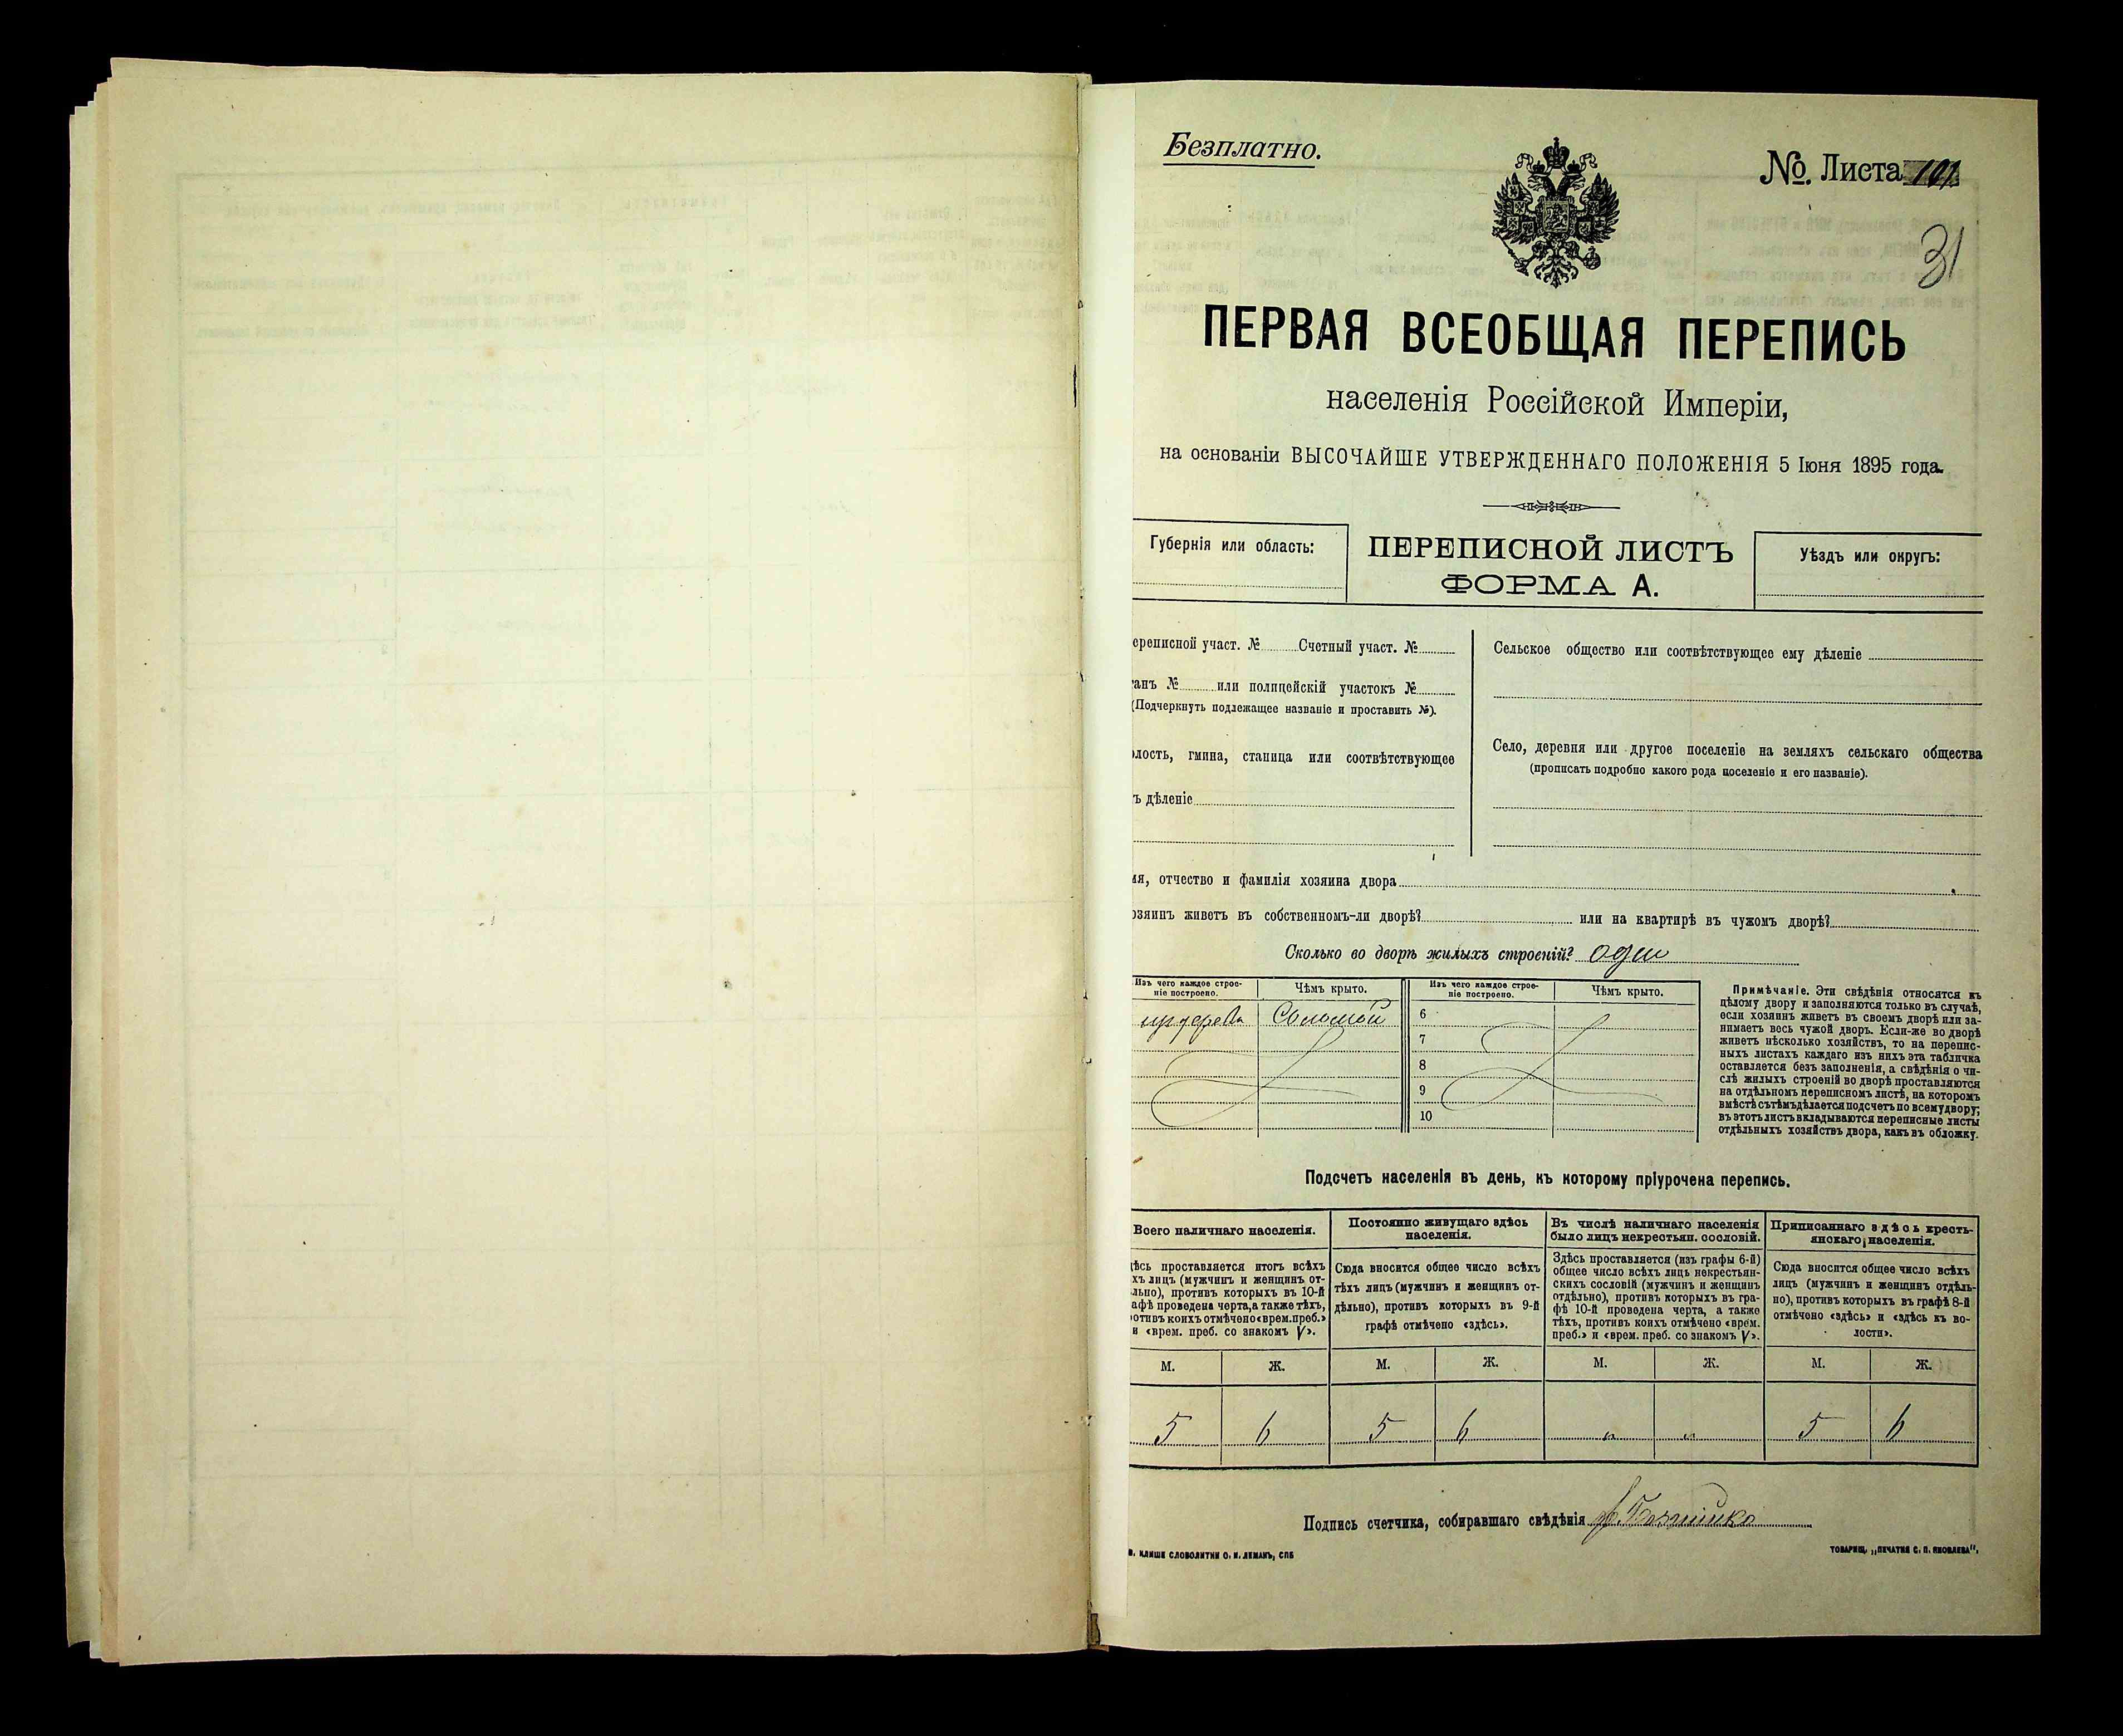 Безплатно.
№ Листа 101.
31
ПЕРВАЯ ВСЕОБЩАЯ ПЕРЕПИСЬ
населенія Россійской Имперіи,
на основаніи ВЫСОЧАЙШЕ УТВЕРЖДЕННАГО ПОЛОЖЕНІЯ 5 Іюня 1895 года.
Губернія или область:
ПЕРЕПИСНОЙ ЛИСТЪ
ФОРМА А.
Уѣздъ или округъ:
ереписной участ. № Счетный участ. №
танъ № или полицейскій участокъ №
(Подчеркнуть подлежащее названіе и проставить №).
олость, гмина, станица или соотвѣтствующее
ъ дѣленіе
Сельское общество или соотвѣтствующее ему дѣленіе
Село, деревня или другое поселеніе на земляхъ сельскаго общества
(прописать подробно какого рода поселеніе и его названіе).
мя, отчество и фамилія хозяина двора
озяинъ живетъ въ собственномъ-ли дворѣ? или на квартирѣ въ чужомъ дворѣ?
Сколько во дворѣ жилыхъ строеній? один
Изъ чего каждое строе-
ніе построено.
Чѣмъ крыто.
Изъ чего каждое строе-
ніе построено.
Чѣмъ крыто.
Соломой
6
7
8
9
10
Примѣчаніе. Эти свѣдѣнія относятся къ
цѣлому двору и заполняются только въ случаѣ,
если хозяинъ живетъ въ своемъ дворѣ или за-
нимаетъ весь чужой дворъ. Если-же во дворѣ
живетъ нѣсколько хозяйствъ, то на перепис-
ныхъ листахъ каждаго изъ нихъ эта табличка
оставляется безъ заполненія, а свѣдѣнія о чи-
слѣ жилыхъ строеній во дворѣ проставляются
на отдѣльномъ переписномъ листѣ, на которомъ
вмѣстѣ съ тѣмъ дѣлается подсчетъ по всему двору;
въ этотъ листъ вкладываются переписные листы
отдѣльныхъ хозяйствъ двора, какъ въ обложку.
Подсчетъ населенія въ день, къ которому пріурочена перепись.
Всего наличнаго населенія.
Постоянно живущаго здѣсь
населенія.
Въ числѣ наличнаго населенія
было лицъ некрестьян. сословій.
Приписаннаго здѣсь кресть-
янскаго населенія.
дѣсь проставляется итогъ всѣхъ
хъ лицъ (мужчинъ и женщинъ от-
льно), противъ которыхъ въ 10-й
афѣ проведена черта, а также тѣхъ,
отивъ коихъ отмѣчено «врем. преб.»
и «врем. преб. со знакомъ V».
Сюда вносится общее число всѣхъ
тѣхъ лицъ (мужчинъ и женщинъ от-
дѣльно), противъ которыхъ въ 9-й
графѣ отмѣчено «здѣсь».
Здѣсь проставляется (изъ графы 6-й)
общее число всѣхъ лицъ некрестьян-
скихъ сословій (мужчинъ и женщинъ
отдѣльно), противъ которыхъ въ гра-
фѣ 10-й проведена черта, а также
тѣхъ, противъ коихъ отмѣчено «врем.
преб.» и «врем. преб. со знакомъ V».
Сюда вносится общее число всѣхъ
лицъ (мужчинъ и женщинъ отдѣль-
но), противъ которыхъ въ графѣ 8-й
отмѣчено «здѣсь» и «здѣсь къ во-
лости».
М. Ж. М. Ж. М. Ж. М. Ж.
5 6 5 6 „ „ 5 6
Подпись счетчика, собиравшаго свѣдѣнія
КЛИШЕ СЛОВОЛИТНИ О. И. ЛЕМАНЪ, СПБ
ТОВАРИЩ. „ПЕЧАТНЯ С. П. ЯКОВЛЕВА".